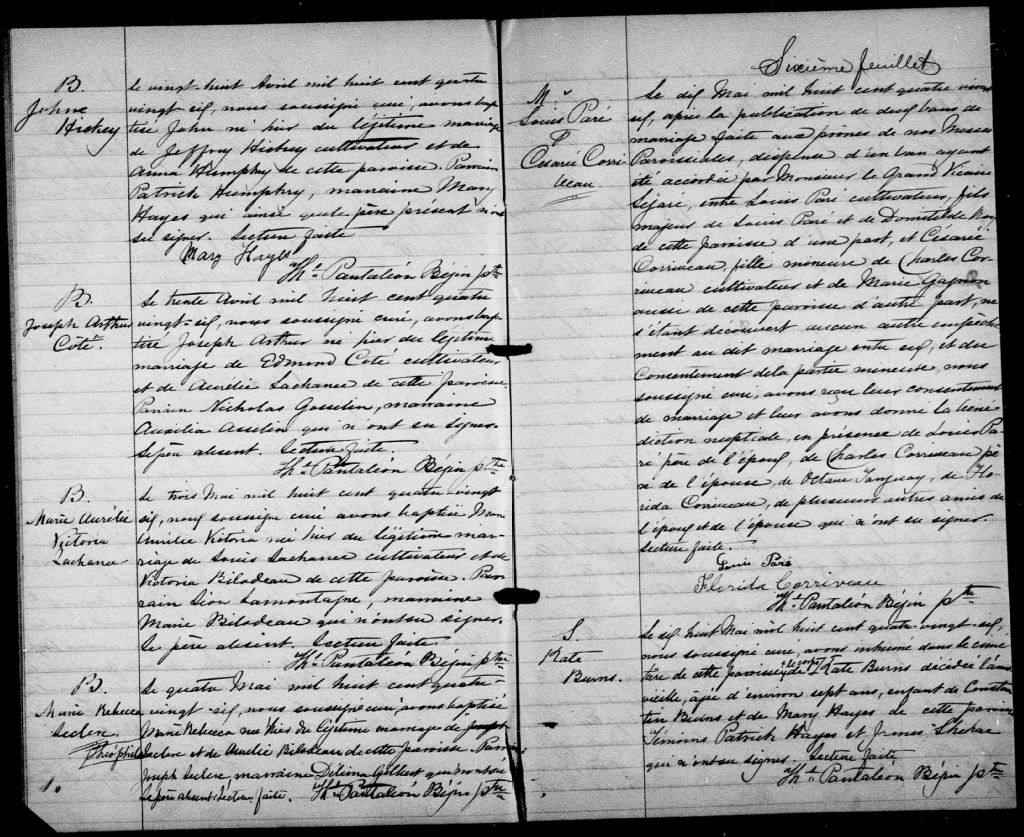 B.
John
Hickey
Le vingt huit Avril mil huit cent quatre
vingt-six, nous soussigné curé, avons bap
tisé John né hier du légitime mariage
de Jeffrey Hickey cultivateur et de
Anna Humphry de cette paroisse. Parrain
Patrick Humphry, marraine Mary
Hayes qui ainsi que le père présent n'ont
su signer. Lecture faite
Mary Hayes
Ths Pantaléon Bégin ptre
B.
Joseph Arthur
Côté.
Le trente Avril mil huit cent quatre
vingt-six, nous soussigné curé, avons bap
tisé Joseph Arthur né hier du légitime
mariage de Edmond Coté cultivateur
et de Aurélie Lachance de cette paroisse.
Parrain Nicholas Gosselin, marraine
Aurélia Asselin qui n'ont su signer.
Le père absent. Lecture faite.
Ths Pantaléon Bégin ptre
B.
Marie Aurélie
Victoria
Lachance
Le trois Mai mil huit cent quatre-vingt
six, nous soussigné curé avons baptisé Marie
Aurélie Victoria née hier du légitime mar-
riage de Louis Lachance cultivateur et de
Victoria Bilodeau de cette paroisse. Par
rain Léon Lamontagne, marraine
Marie Bilodeau qui n'ont su signer.
Le père absent. Lecture faite
Ths Pantaléon Bégin ptre
B.
Marie Rebecca
Leclerc.
Théophile
Le quatre Mai mil huit cent quatre-
vingt-six, nous soussigné curé, avons baptisé
Marie Rebecca née hier du légitime mariage de
Leclerc et de Aurélie Bilodeau de cette paroisse. Parrain
Joseph Leclerc, marraine Délima Gilbert qui n'ont su
Le père absent. Lecture faite. Ths Pantaléon Bégin ptre
Sixième feuillet
M.
Louis Paré
&
Césarie Corri-
veau.
Le dix Mai mil huit cent quatre vingt
six, après la publication de deux bans de
mariage faite aux prônes de nos Messes
Paroissiales, dispense d'un ban ayant
été accordée par Monsieur le Grand Vicaire
Légaré, entre Louis Paré cultivateur, fils
majeur de Louis Paré et de Domitilde Roy
de cette paroisse d'une part, et Césarie
Corriveau, fille mineure de Charles Cor-
riveau cultivateur et de Marie Gagnon
aussi de cette paroisse d'autre part, ne
s'étant découvert aucun autre empêche
ment au dit mariage entre eux, et du
consentement de la partie mineure, nous
soussigné curé, avons reçu leur consentement
de mariage et leur avons donné la béné
diction nuptiale, en présence de Louis Pa
ré père de l'époux, de Charles Corriveau pè
re de l'épouse, de Octave Tanguay, de Flo
rida Corriveau, de plusieurs autres amis de
l'époux et de l'épouse qui n'ont su signer.
Lecture faite.
Louis Paré
Florida Corriveau
Ths Pantaléon Bégin ptre
S.
Kate
Burns.
Le dix-huit Mai mil huit cent quatre-vingt-six,
nous soussigné curé, avons inhumé dans le cime
tière de cette paroisse + le corps de Kate Burns décédée l'avant
veille, âgée d'environ sept ans, enfant de Constan
tin Burns et de Mary Hayes de cette paroisse
Témoins Patrick Hayes et
qui n'ont su signer. Lecture faite
Ths Pantaléon Bégin ptre